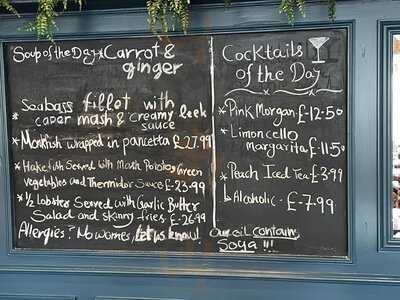 Soup of the Day * Carrot &
ginger
Seabass fillet with
* caper mash & creamy leek
sauce
* Monkfish wrapped in pancetta £27.99
* Hake fish Served with Mash Potatoes, Green
vegetables and Thermidor Sauce £-23.99
* 1/2 Lobster Served with Garlic Butter
Salad and skinny fries £-26.99
Allergies? No worries, let us know!
Cocktails
of the Day
* Pink Morgan £-12.50
* Limoncello
Margarita £-11.50
* Peach Iced Tea £-3.99
↳ Alcoholic - £-7.99
Our oil contains
Soya !!!